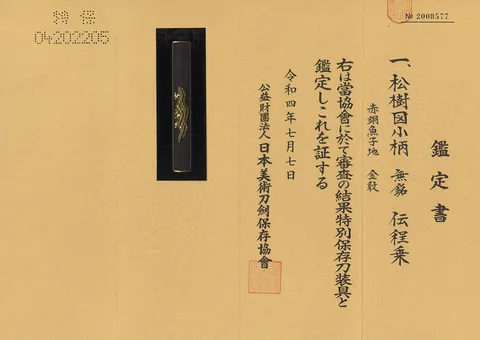 № 2008577
特保
04202205
鑑定書
一、松樹図小柄 無銘 伝程乗
赤銅魚子地 金紋
右は當協會に於て審査の結果特別保存刀装具と
鑑定しこれを証する
令和四年七月七日
公益財團法人 日本美術刀劍保存協會